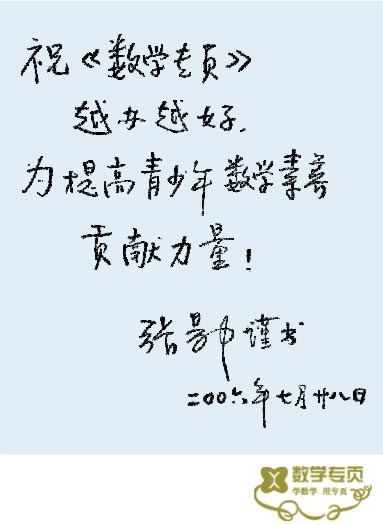 祝《数学专页》
越办越好.
为提高青少年数学素养
贡献力量!
张景中谨书
二00六年七月廿八日
数学专页
学数学 用专页